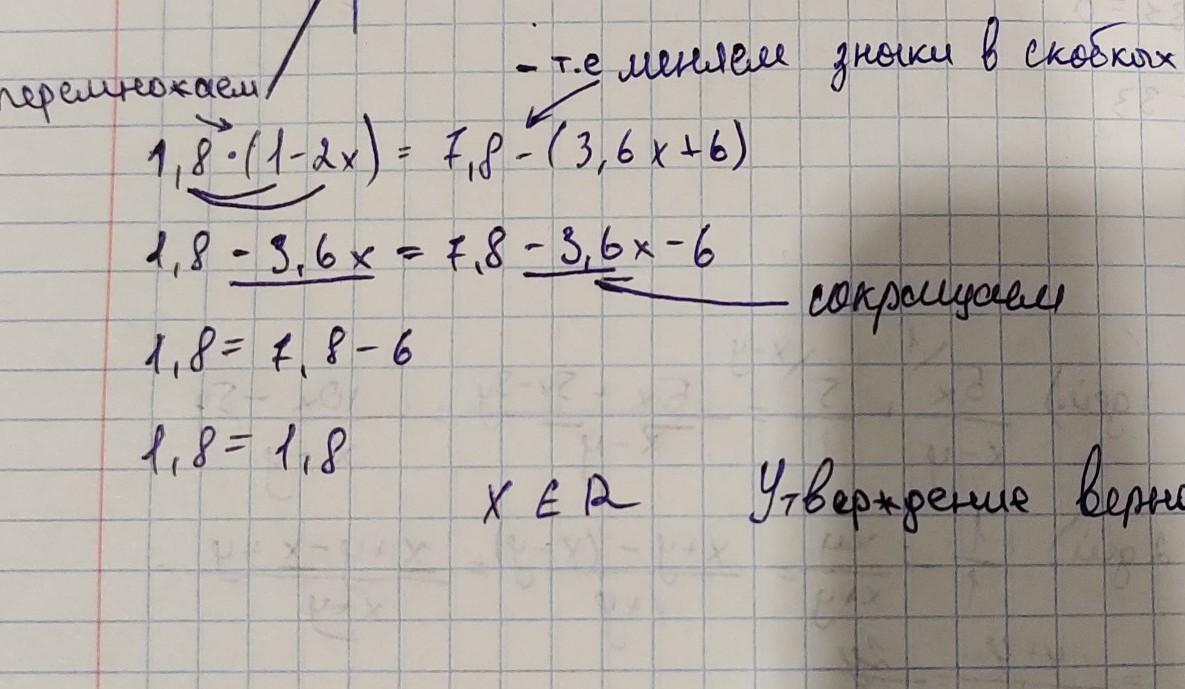 - т.е меняем знаки в скобках
перемножаем
1,8·(1-2x) = 7,8-(3,6x+6)
1,8 - 3,6x = 7,8 - 3,6x - 6
сокращаем
1,8 = 7,8 - 6
1,8 = 1,8
x ∈ R Утверждение верно